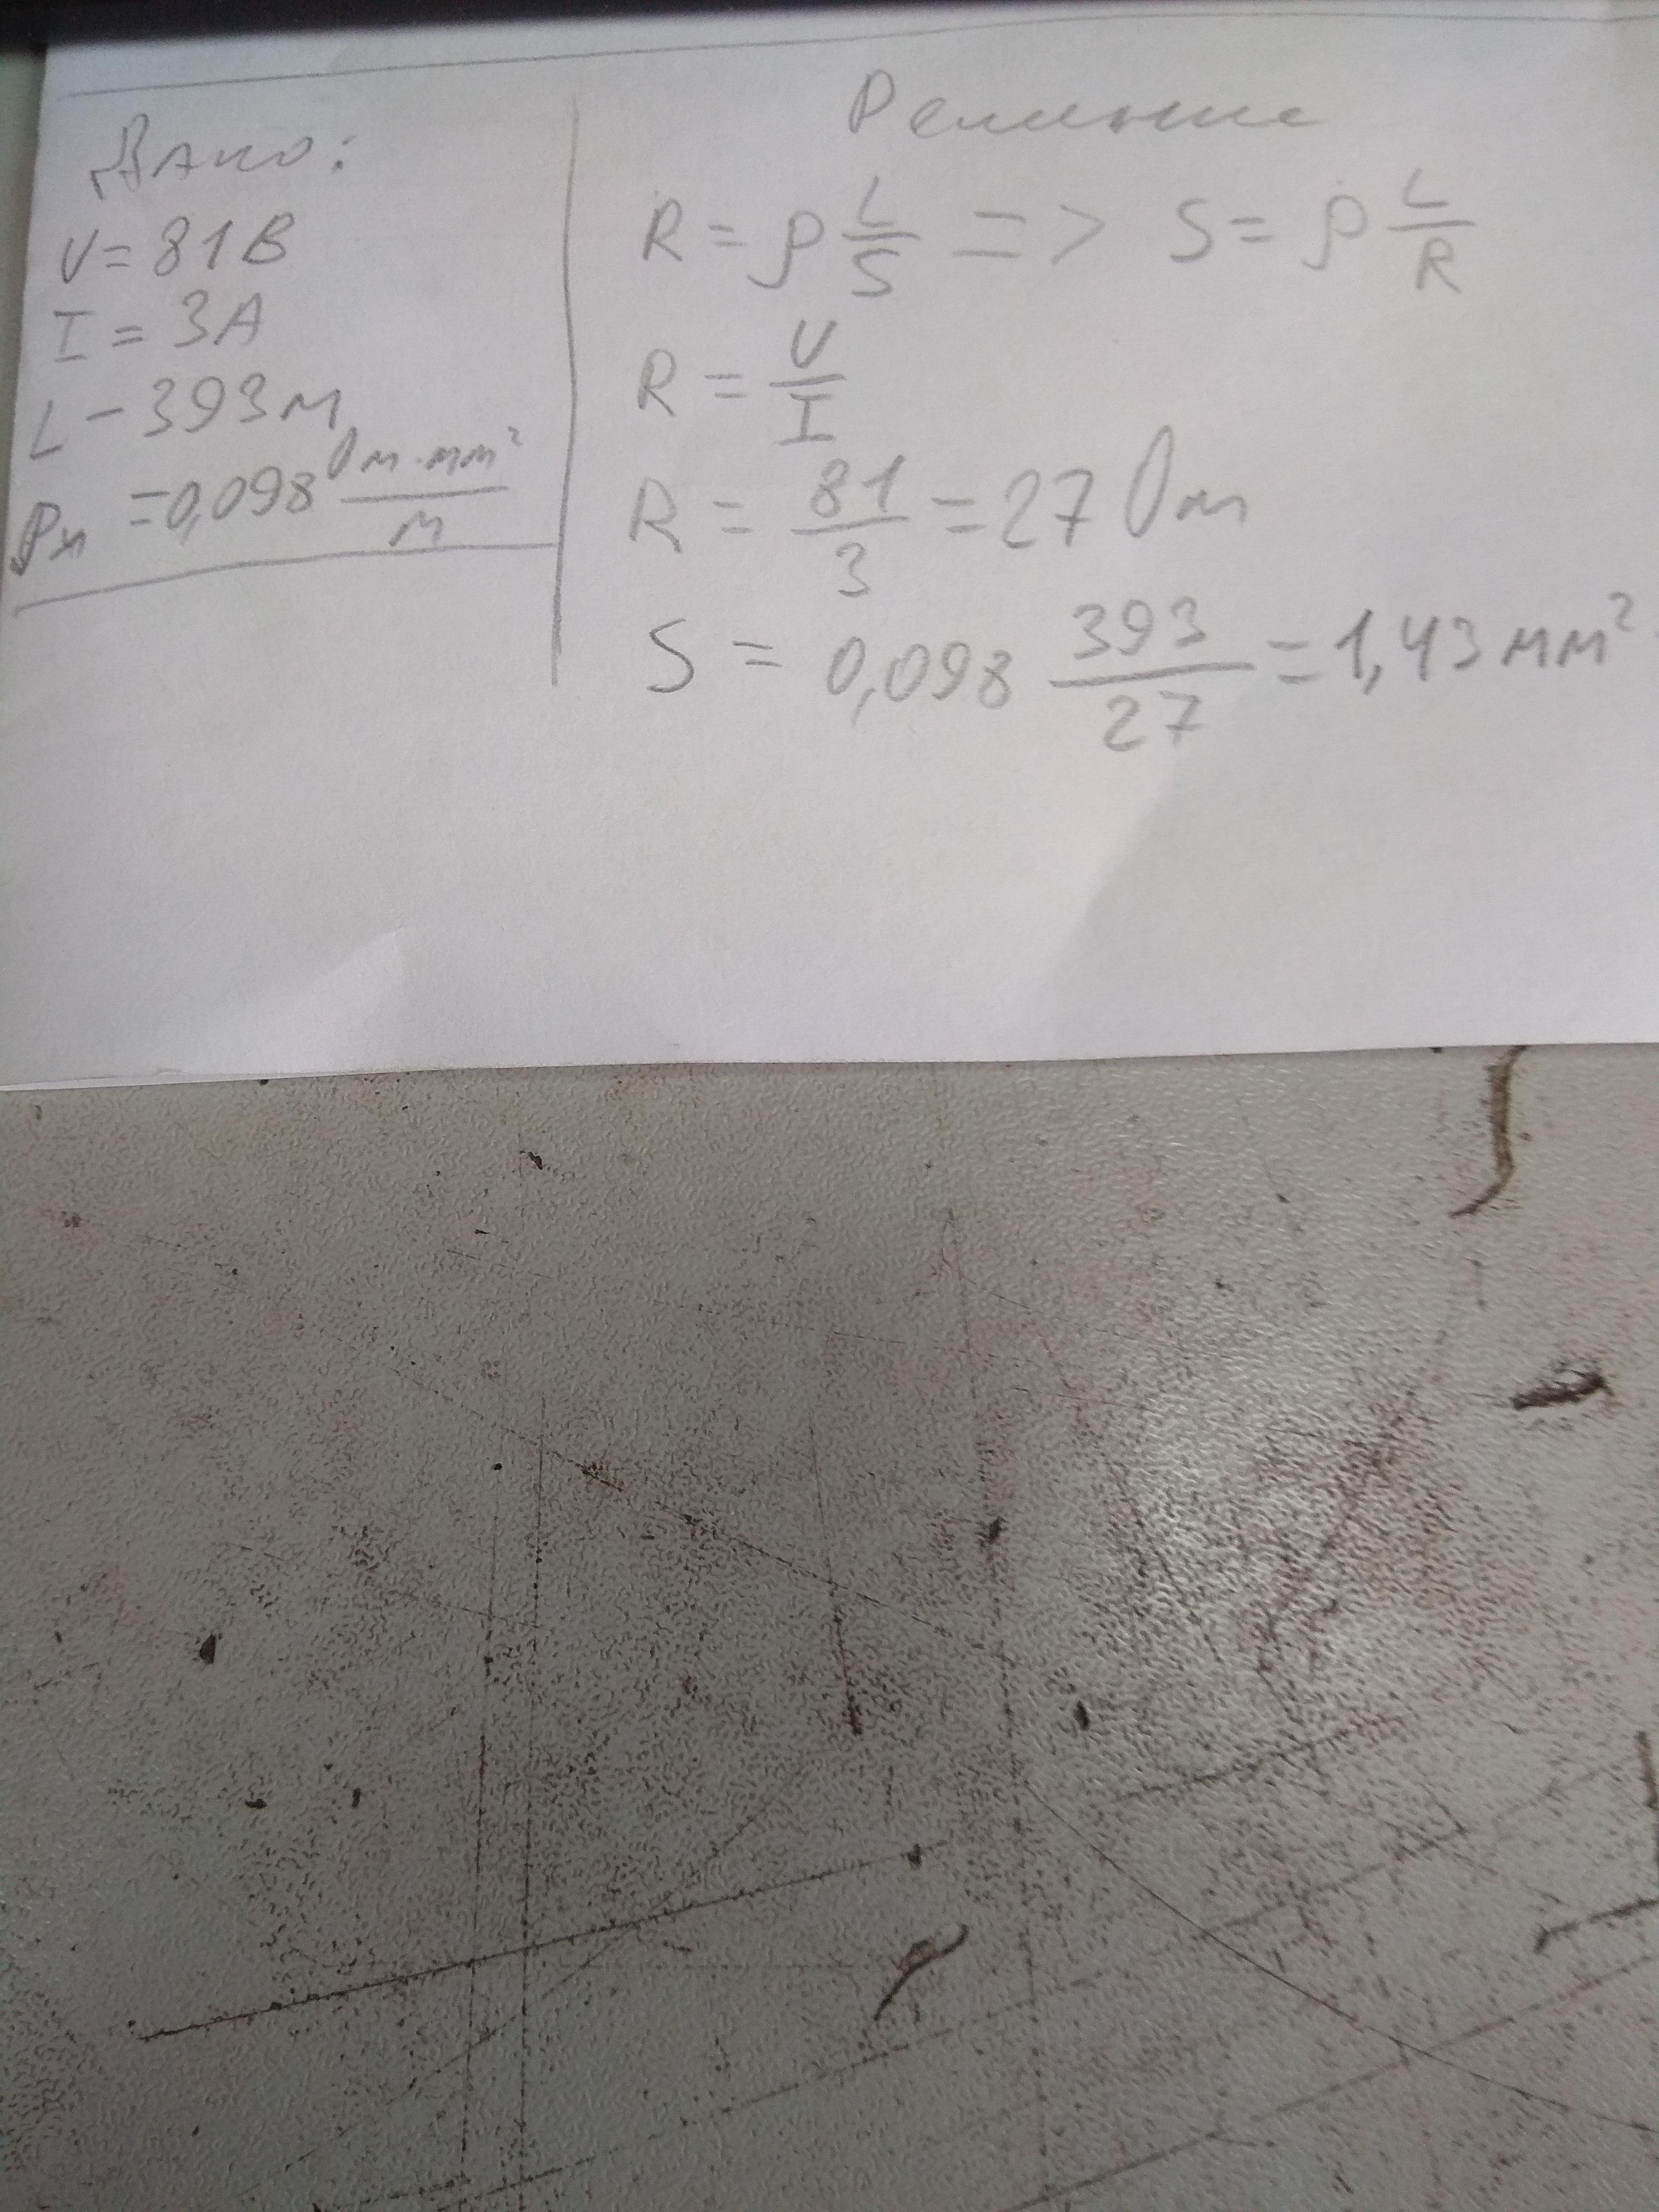 Дано:
U = 81 В
I = 3 А
L - 393 м
ρж = 0,098 Ом·мм²/м
Решение
R = ρ L/S => S = ρ L/R
R = U/I
R = 81/3 = 27 Ом
S = 0,098 393/27 = 1,43 мм²